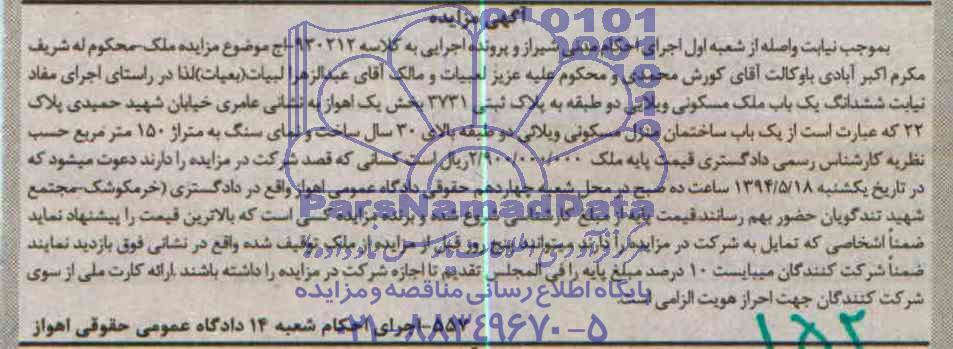 آگهی مزایده
بموجب نیابت واصله از شعبه اول اجرای احکام مدنی شیراز و پرونده اجرایی به کلاسه ۹۳۰۲۱۲-اج موضوع مزایده ملک-محکوم له شریف
مکرم اکبر آبادی باوکالت آقای کورش محمدی و محکوم علیه عزیز لعبیات و مالک آقای عبدالزهرا لبیات(بعیات)لذا در راستای اجرای مفاد
نیابت ششدانگ یک باب ملک مسکونی ویلایی دو طبقه به پلاک ثبتی ۳۷۳۱ بخش یک اهواز به نشانی عامری خیابان شهید حمیدی پلاک
۲۲ که عبارت است از یک باب ساختمان منزل مسکونی ویلائی دو طبقه بالای ۳۰ سال ساخت و نمای سنگ به متراژ ۱۵۰ متر مربع حسب
نظریه کارشناس رسمی دادگستری قیمت پایه ملک ۲/۹۰۰/۰۰۰/۰۰۰ریال است کسانی که قصد شرکت در مزایده را دارند دعوت میشود که
در تاریخ یکشنبه ۱۳۹۴/۵/۱۸ ساعت ده صبح در محل شعبه چهاردهم حقوقی دادگاه عمومی اهواز واقع در دادگستری (خرمکوشک-مجتمع
شهید تندگویان حضور بهم رسانند قیمت پایه از مبلغ کارشناسی شروع شده و برنده مزایده کسی است که بالاترین قیمت را پیشنهاد نماید
ضمناً اشخاصی که تمایل به شرکت در مزایده را دارند میتوانند پنج روز قبل از مزایده از ملک توقیف شده واقع در نشانی فوق بازدید نمایند
ضمناً شرکت کنندگان میبایست ۱۰ درصد مبلغ پایه را فی المجلس تقدیم تا اجازه شرکت در مزایده را داشته باشند .ارائه کارت ملی از سوی
شرکت کنندگان جهت احراز هویت الزامی است.
۵۵۷-اجرای احکام شعبه ۱۴ دادگاه عمومی حقوقی اهواز
ParsNamadData
پایگاه اطلاع رسانی مناقصه و مزایده
۰۲۱-۸۸۳۴۹۶۷۰-۵